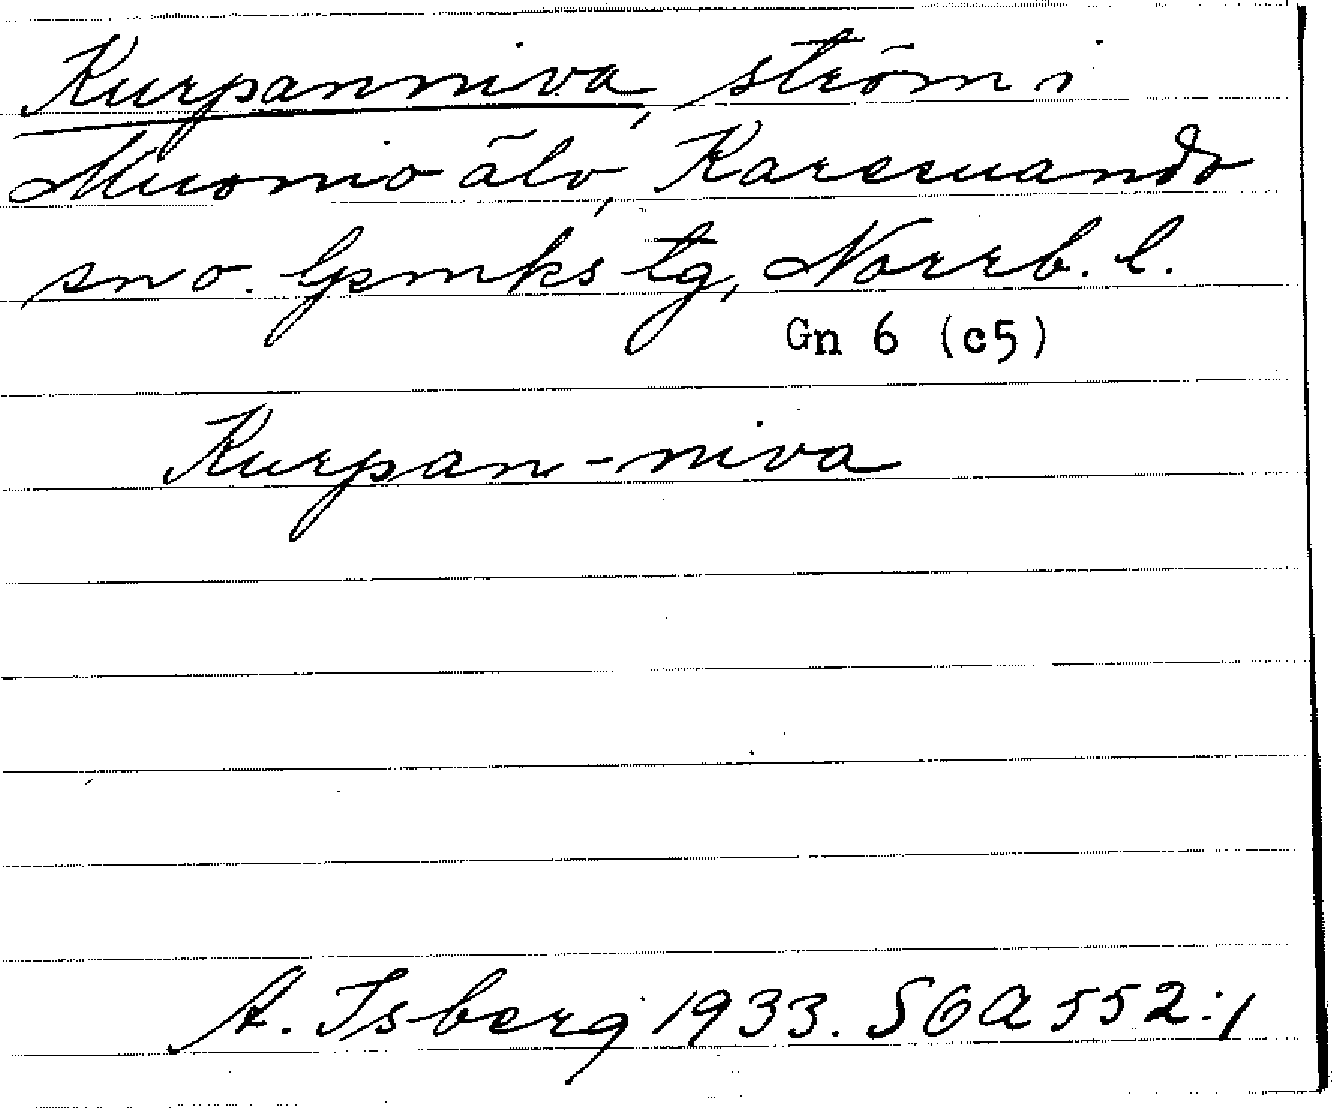 Kurpanniva, ström i
Muonio älv, Karesuando
sn o. lpmks tg, Norrb. l.
Gn 6 (c5)
Kurpan-niva
A. Isberg 1933. SOA 552:1